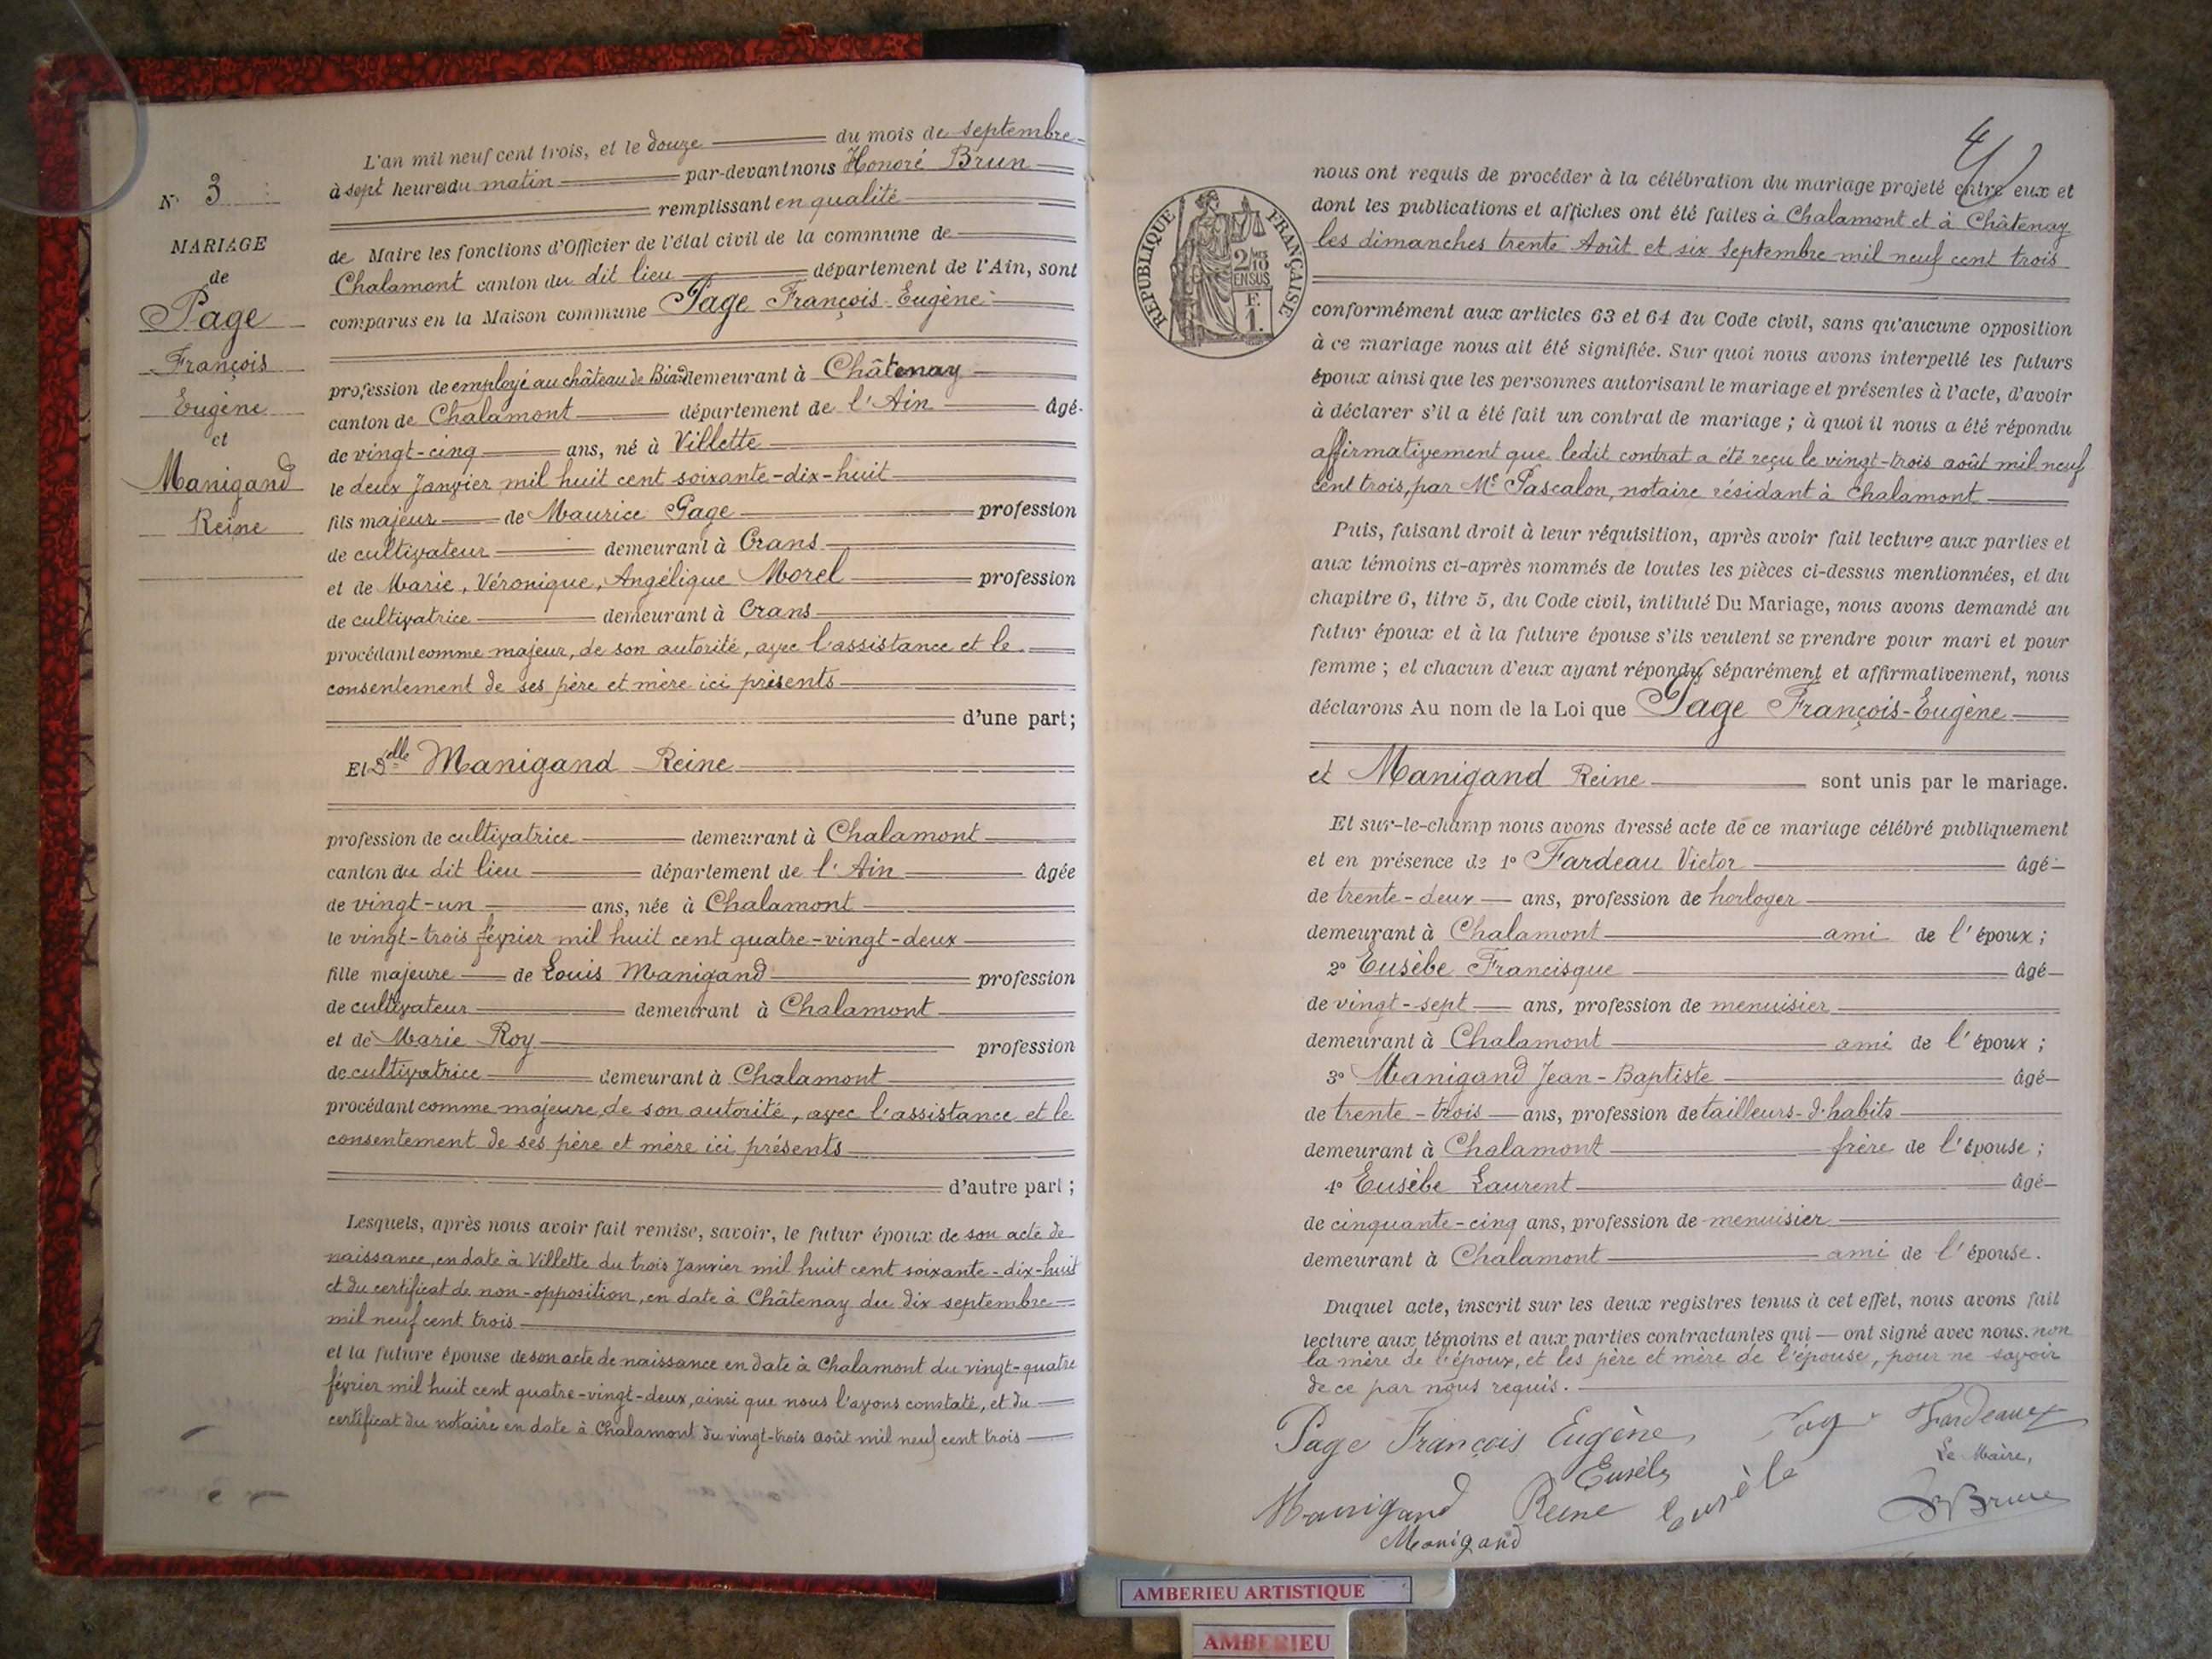 N° 3
MARIAGE
de
Page
François
Eugène
et
Manigand
Reine
L'an mil neuf cent trois, et le douze du mois de septembre
à sept heures du matin par-devant nous Honoré Brun
remplissant en qualité
de Maire les fonctions d'Officier de l'état civil de la commune de
Chalamont canton du dit lieu département de l'Ain, sont
comparus en la Maison commune Page François-Eugène
profession de employé au château de demeurant à Châtenay
canton de Chalamont département de l'Ain âgé
de vingt-cinq ans, né à Villette
le deux Janvier mil huit cent soixante-dix-huit
fils majeur de Maurice Page profession
de cultivateur demeurant à Crans
et de Marie, Véronique, Angélique Morel profession
de cultivatrice demeurant à Crans
procédant comme majeur, de son autorité, avec l'assistance et le
consentement de ses père et mère ici présents
d'une part;
Et Delle Manigand Reine
profession de cultivatrice demeurant à Chalamont
canton du dit lieu département de l'Ain âgée
de vingt-un ans, née à Chalamont
le vingt-trois février mil huit cent quatre-vingt-deux
fille majeure de Louis Manigand profession
de cultivateur demeurant à Chalamont
et de Marie Roy profession
de cultivatrice demeurant à Chalamont
procédant comme majeure, de son autorité, avec l'assistance et le
consentement de ses père et mère ici présents
d'autre part;
Lesquels, après nous avoir fait remise, savoir, le futur époux de son acte de
naissance, en date à Villette du trois Janvier mil huit cent soixante-dix-huit
et du certificat de non-opposition, en date à Châtenay du dix septembre
mil neuf cent trois
et la future épouse de son acte de naissance en date à Chalamont du vingt-quatre
février mil huit cent quatre-vingt-deux, ainsi que nous l'avons constaté, et du
certificat du notaire en date à Chalamont du vingt-trois août mil neuf cent trois
4
REPUBLIQUE FRANÇAISE
2/10
EN SUS
F.
1.
nous ont requis de procéder à la célébration du mariage projeté entre eux et
dont les publications et affiches ont été faites à Chalamont et à Châtenay
les dimanches trente Août et six Septembre mil neuf cent trois
conformément aux articles 63 et 64 du Code civil, sans qu'aucune opposition
à ce mariage nous ait été signifiée. Sur quoi nous avons interpellé les futurs
époux ainsi que les personnes autorisant le mariage et présentes à l'acte, d'avoir
à déclarer s'il a été fait un contrat de mariage; à quoi il nous a été répondu
affirmativement que ledit contrat a été reçu le vingt-trois août mil neuf
cent trois, par Me Pascalon, notaire résidant à Chalamont
Puis, faisant droit à leur réquisition, après avoir fait lecture aux parties et
aux témoins ci-après nommés de toutes les pièces ci-dessus mentionnées, et du
chapitre 6, titre 5, du Code civil, intitulé Du Mariage, nous avons demandé au
futur époux et à la future épouse s'ils veulent se prendre pour mari et pour
femme; et chacun d'eux ayant répondu séparément et affirmativement, nous
déclarons Au nom de la Loi que Page François-Eugène
et Manigand Reine sont unis par le mariage.
Et sur-le-champ nous avons dressé acte de ce mariage célébré publiquement
et en présence de 1° Fardeau Victor âgé
de trente-deux ans, profession de horloger
demeurant à Chalamont ami de l'époux;
2° Eusèbe Francisque âgé
de vingt-sept ans, profession de menuisier
demeurant à Chalamont ami de l'époux;
3° Manigand Jean-Baptiste âgé
de trente-trois ans, profession de tailleurs-d'habits
demeurant à Chalamont frère de l'épouse;
4° Eusèbe Laurent âgé
de cinquante-cinq ans, profession de menuisier
demeurant à Chalamont ami de l'épouse.
Duquel acte, inscrit sur les deux registres tenus à cet effet, nous avons fait
lecture aux témoins et aux parties contractantes qui ont signé avec nous. non
la mère de l'époux, et les père et mère de l'épouse, pour ne savoir
de ce par nous requis.
Page François Eugène Page Fardeau
Le Maire,
Eusèbe
Manigand Reine Eusèbe
HBrun
Manigand
AMBERIEU ARTISTIQUE
AMBERIEU